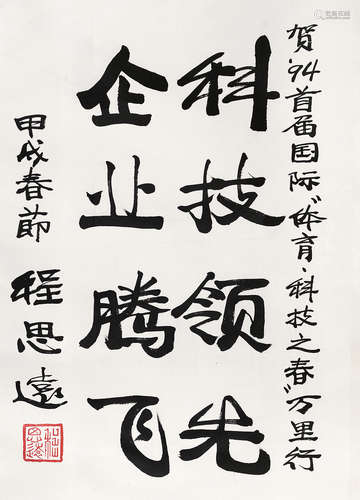 贺'94首届国际"体育·科技之春"万里行
科技领先
企业腾飞
甲戌春节
程思远
程思远